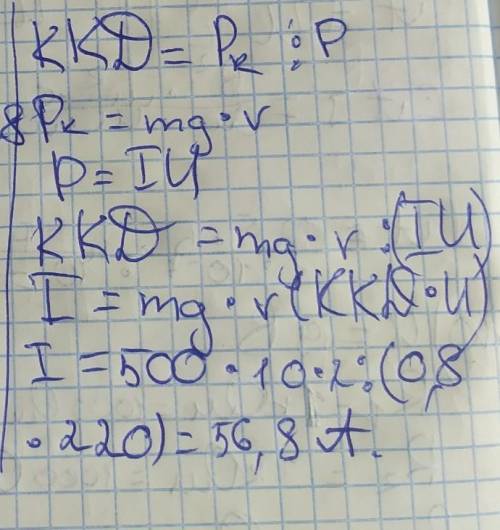 ККД = Pк : P
Pк = mg · v
P = IU
ККД = mg · v : (IU)
I = mg · v (ККД · U)
I = 500 · 10 · 2 : (0,8
· 220) = 56,8 А.